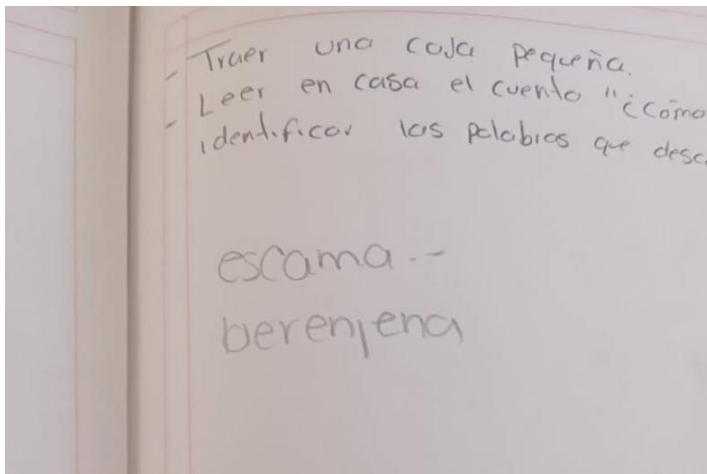 - Traer una caja pequeña.
- Leer en casa el cuento "¿Cómo
identificar las palabras que desc
escama.-
berenjena